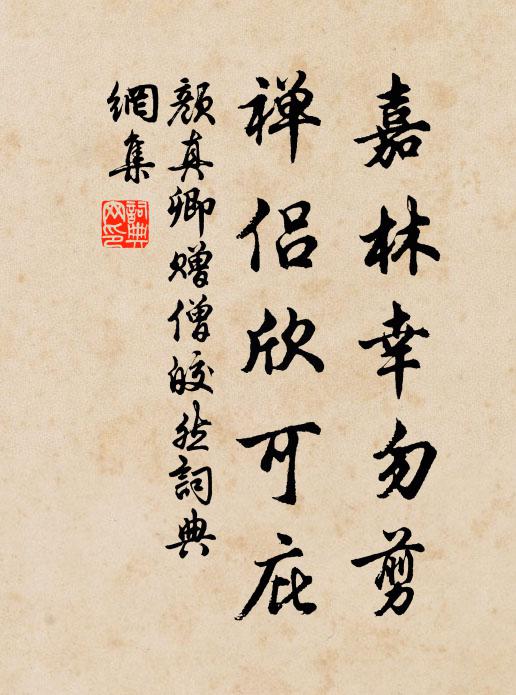 嘉林幸勿剪
禅侣欣可庇
颜真卿赠僧皎然詞典
網集
詞典
网印